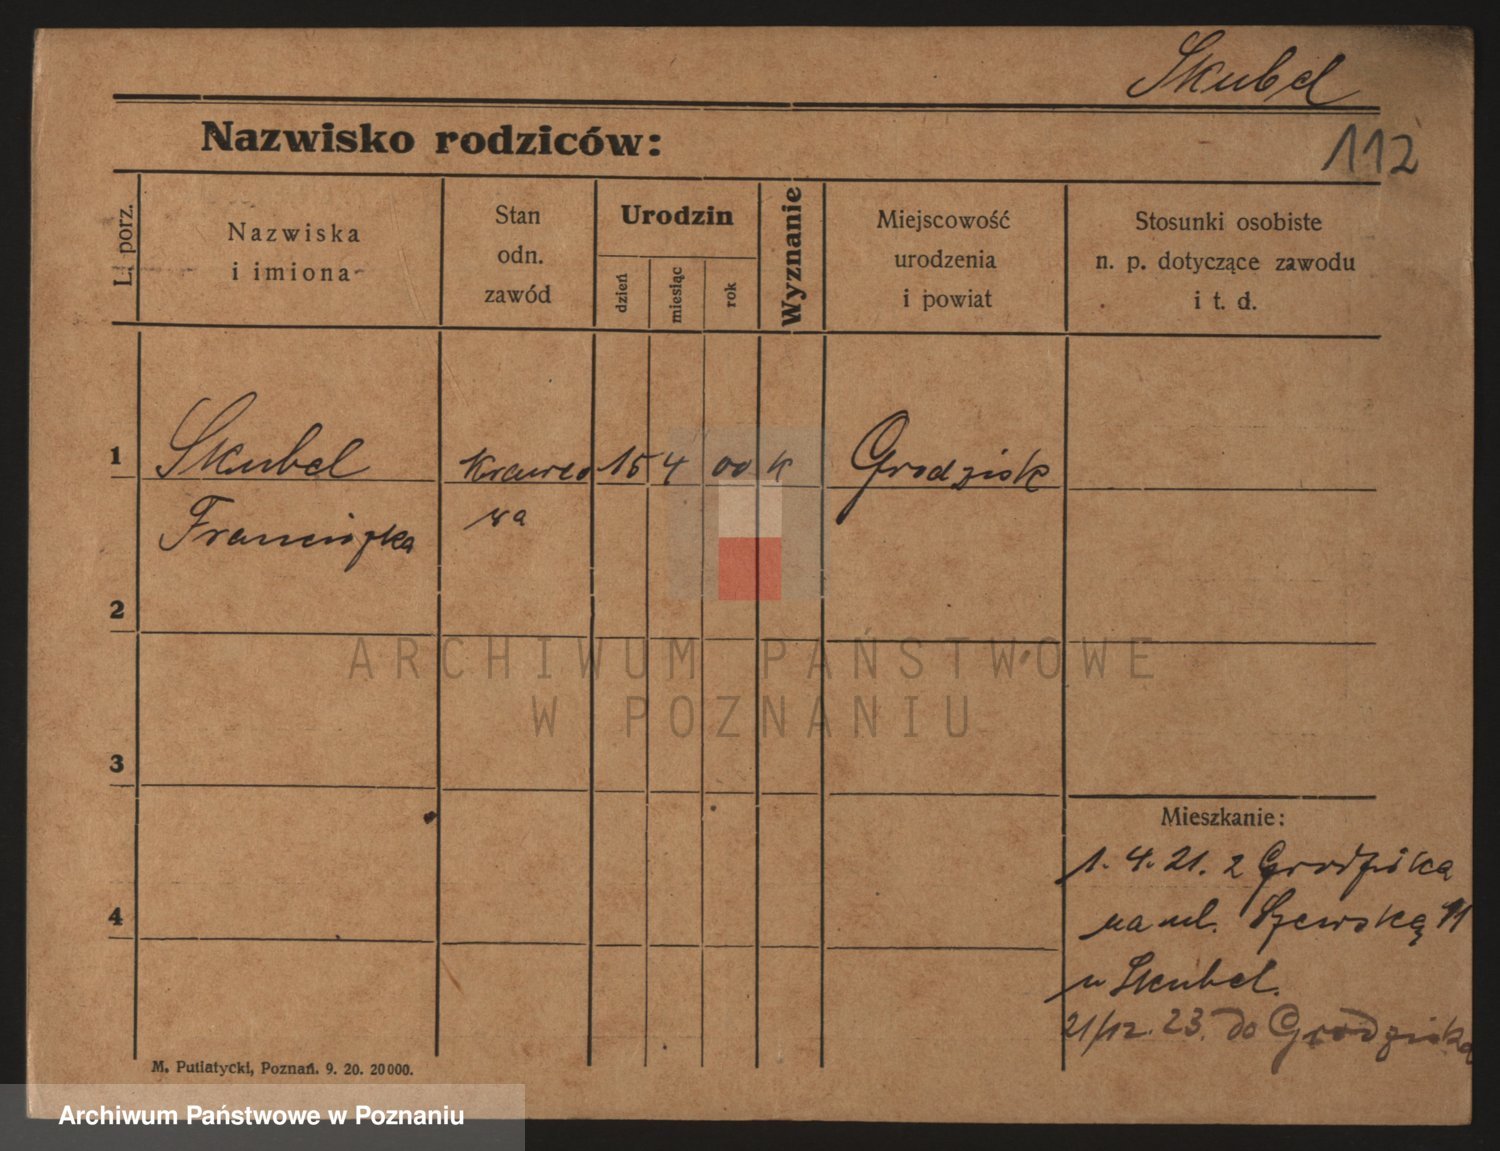 Skubel
Nazwisko rodziców:
112
L. porz.
Nazwiska
i imiona
Stan
odn.
zawód
Urodzin
dzień
miesiąc
rok
Wyznanie
Miejscowość
urodzenia
i powiat
Stosunki osobiste
n. p. dotyczące zawodu
i t. d.
1
Skubel
krawco
15
4
00
k
Grodzisk
wa
Franciszka
2
3
4
ARCHIWUM PAŃSTWOWE
W POZNANIU
Mieszkanie:
1. 4. 21. z Grodziska
na ul. Szewską 11
u Skubel.
21/12. 23. do Grodziska
M. Putiatycki, Poznań. 9. 20. 20000.
Archiwum Państwowe w Poznaniu